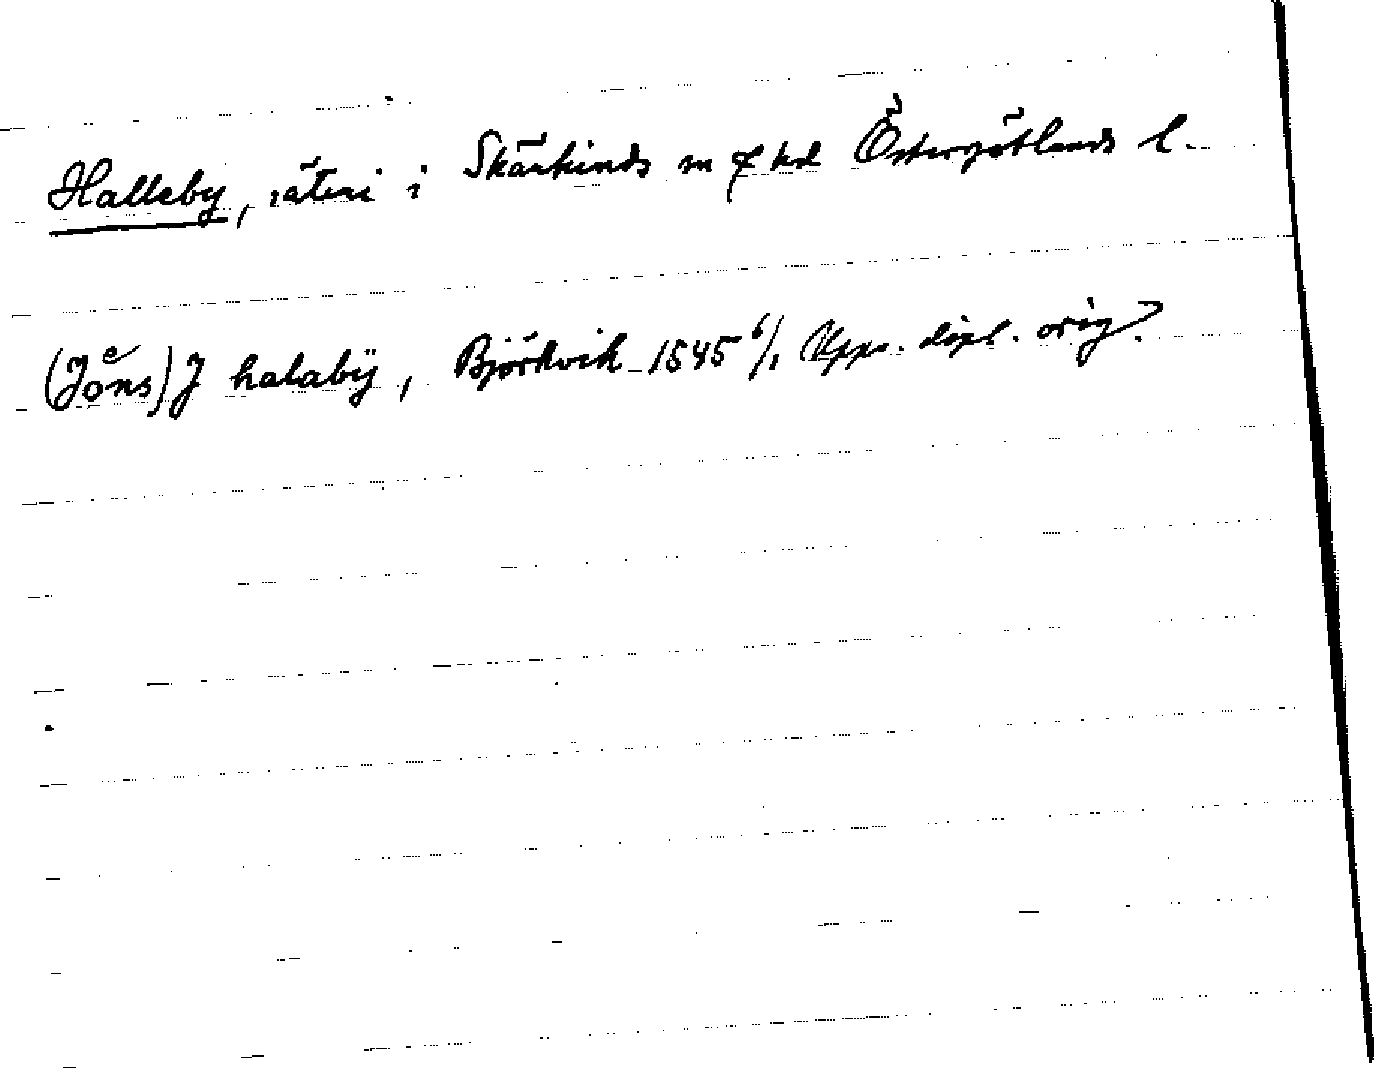 Halleby, säteri i Skärkinds sn o hd Östergötlands l.
(Jöns) J halabÿ, Björkvik 1545 6/1 Upps. dipl. orig.